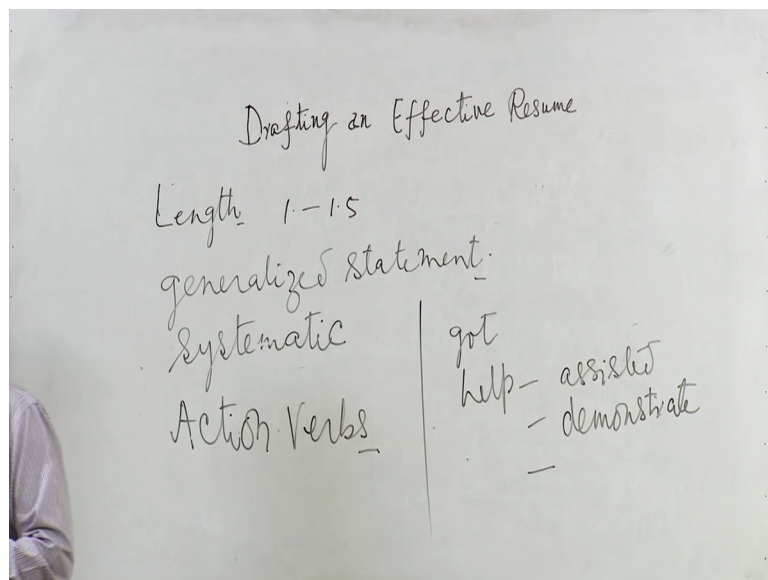 Drafting an Effective Resume
Length 1.-1.5
generalized statement.
systematic
Action Verbs
got
help - assisted
- demonstrate
-